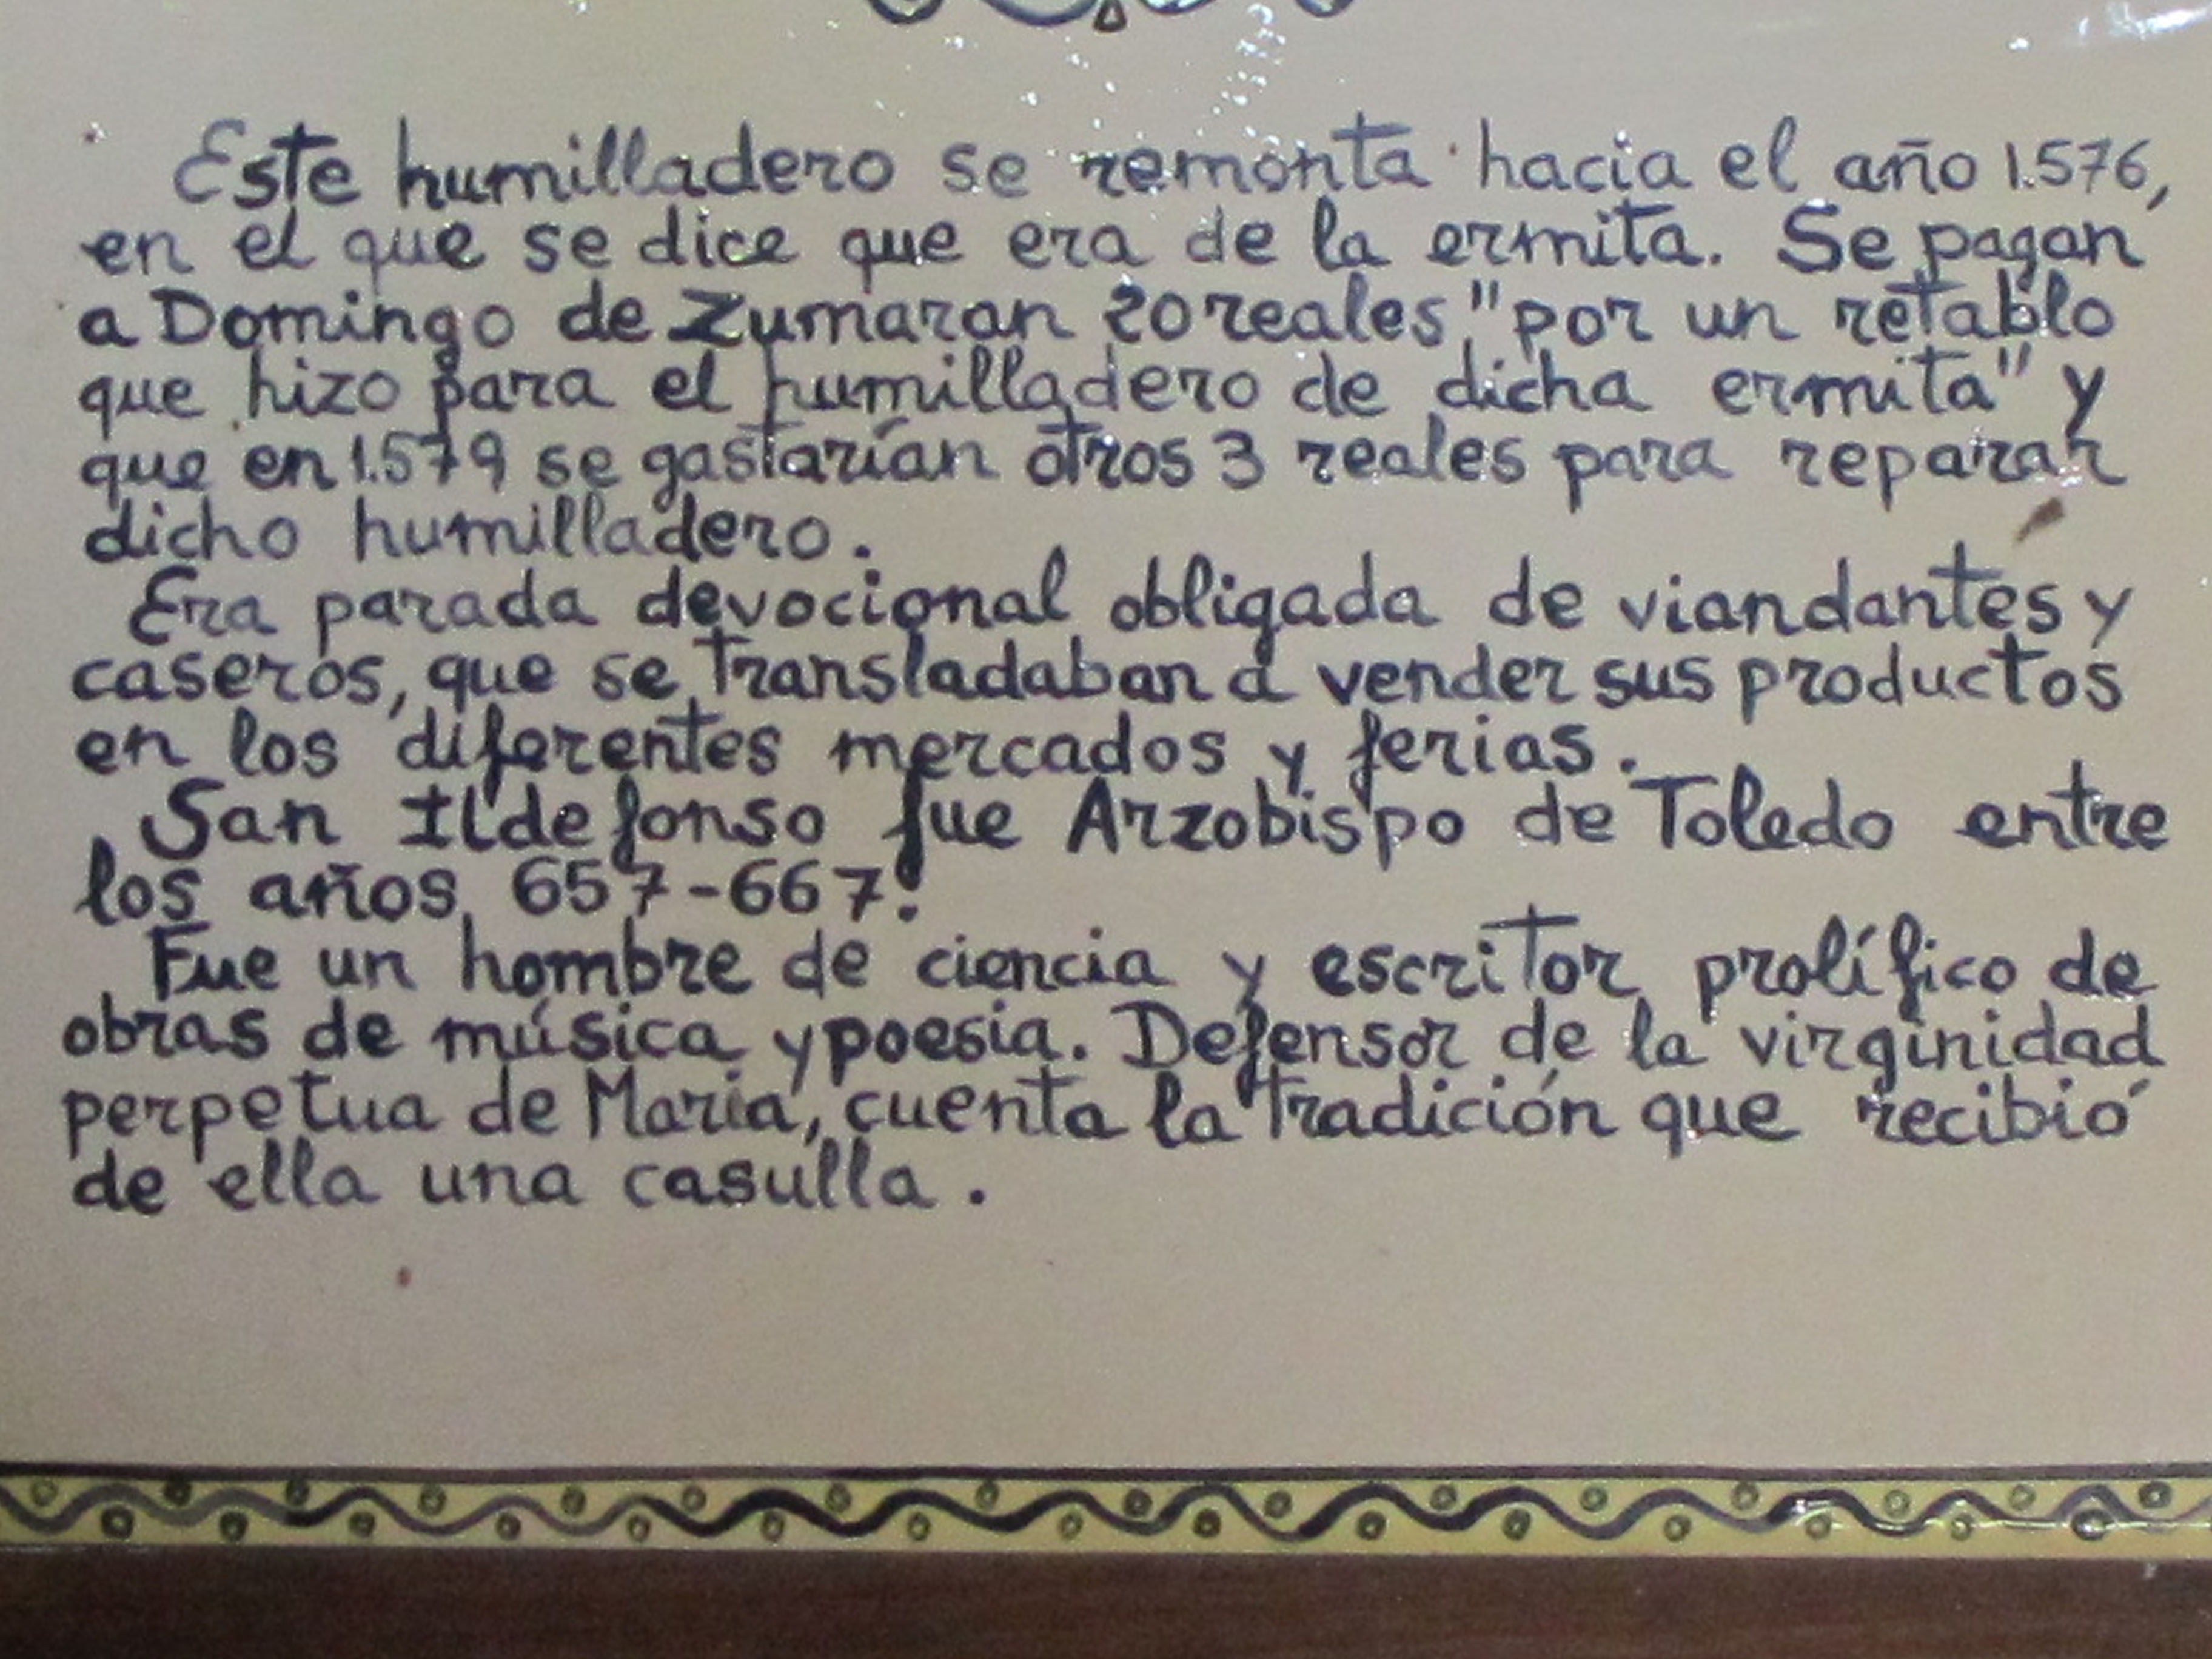 Este humilladero se remonta hacia el año 1.576,
en el que se dice que era de la ermita. Se pagan
a Domingo de Zumaran 20 reales "por un retablo
que hizo para el humilladero de dicha ermita" y
que en 1.579 se gastarían otros 3 reales para reparar
dicho humilladero.
Era parada devocional obligada de viandantes y
caseros, que se transladaban a vender sus productos
en los diferentes mercados y ferias.
San Ildefonso fue Arzobispo de Toledo entre
los años 657-667.
Fue un hombre de ciencia y escritor prolífico de
obras de música y poesia. Defensor de la virginidad
perpetua de Maria, cuenta la tradición que recibió
de ella una casulla.